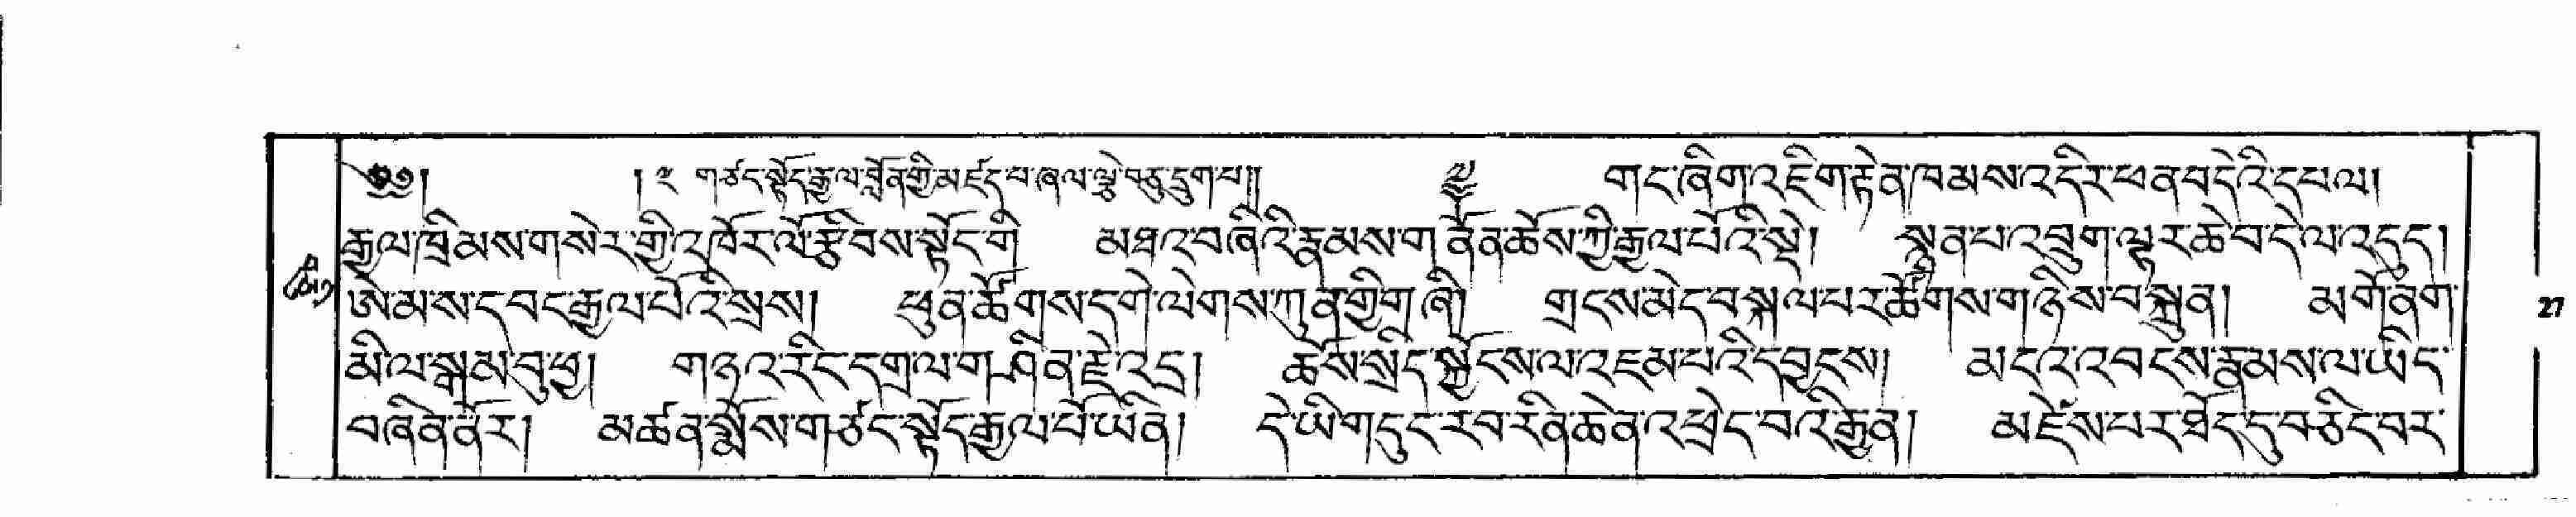 ༄༅། །༢ གཙང་སྟོད་རྒྱལ་བློན་གྱི་མཛད་པ་ཞལ་ལྕེ་བཅུ་དྲུག་པ།། གང་ཞིག་འཇིག་རྟེན་ཁམས་འདིར་ཕན་བདེའི་དཔལ།
རྒྱལ་ཁྲིམས་གསེར་གྱི་འཁོར་ལོ་རྩིབས་སྟོང་གི མཐའ་བཞིའི་རྣམས་གནོན་ཆོས་ཀྱི་རྒྱལ་པོའི་སྡེ། སྙན་པ་འབྲུག་ལྟར་ཆེ་བ་དེ་ལ་འདུད།
ཨེ་མ་ས་དབང་རྒྱལ་པོའི་སྲས། ཕུན་ཚོགས་དགེ་ལེགས་ཀུན་གྱི་གཞི། གྲངས་མེད་བསྐལ་པར་ཚོགས་གཉིས་བསྐྲུན། མགོ་ནག་
མི་ལ་སྒམ་བུ་ཕྱ། གཉའ་རིང་དགྲ་ལ་གཤིན་རྗེ་འདྲ། ཆོས་སྲིད་སྐྱོངས་ལ་འཇམ་པའི་དབྱངས། མངའ་འབངས་རྣམས་ལ་ཡིད་
བཞིན་ནོར། མཚན་སྨོས་གཙང་སྟོད་རྒྱལ་པོ་ཡིན། དེ་ཡི་གདུང་རབ་རིན་ཆེན་འཕྲེད་བའི་རྒྱན། མཛེས་པར་ཐོད་དུ་བཅིང་བར་
27